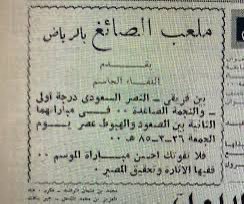 ملعب الصائغ بالرياض
يقدم
اللقاء الحاسم
بين فريقي ـ النصر السعودى درجة أولى
ـ والنجمة الصاعدة ٠٠ فى مباراتهما
الثانية بين الصعود والهبوط عصر يوم
الجمعة ٢٦ـ٣ـ٨٥ هـ ٠٠
فلا تفوتك احسن مباراة الموسم ٠٠
ففيها الاثارة وتحقيق المصير ٠